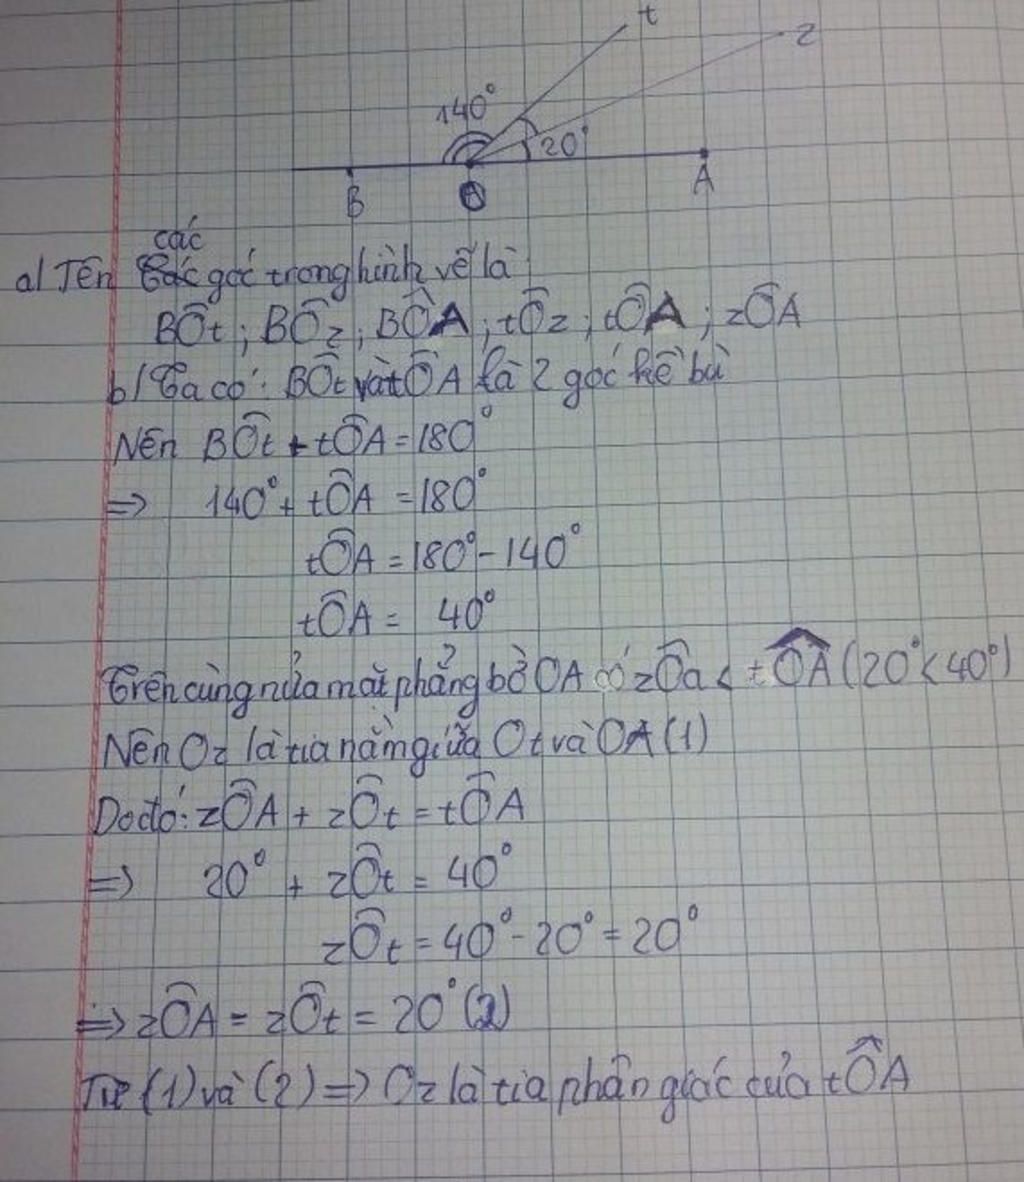 t
z
140°
20°
B
O
A
các
a/ Tên góc trong hình vẽ là
BÔt ; BÔz ; BÔA ; tÔz ; tÔA ; zÔA
b/ Ta có: BÔt và tÔA là 2 góc kề bù
Nên BÔt + tÔA = 180°
=> 140° + tÔA = 180°
tÔA = 180° - 140°
tÔA = 40°
Trên cùng nửa mặt phẳng bờ OA có zÔa < tÔA (20° < 40°)
Nên Oz là tia nằm giữa Ot và OA (1)
Do đó: zÔA + zÔt = tÔA
=> 20° + zÔt = 40°
zÔt = 40° - 20° = 20°
=> zÔA = zÔt = 20° (2)
Từ (1) và (2) => Oz là tia phân giác của tÔA